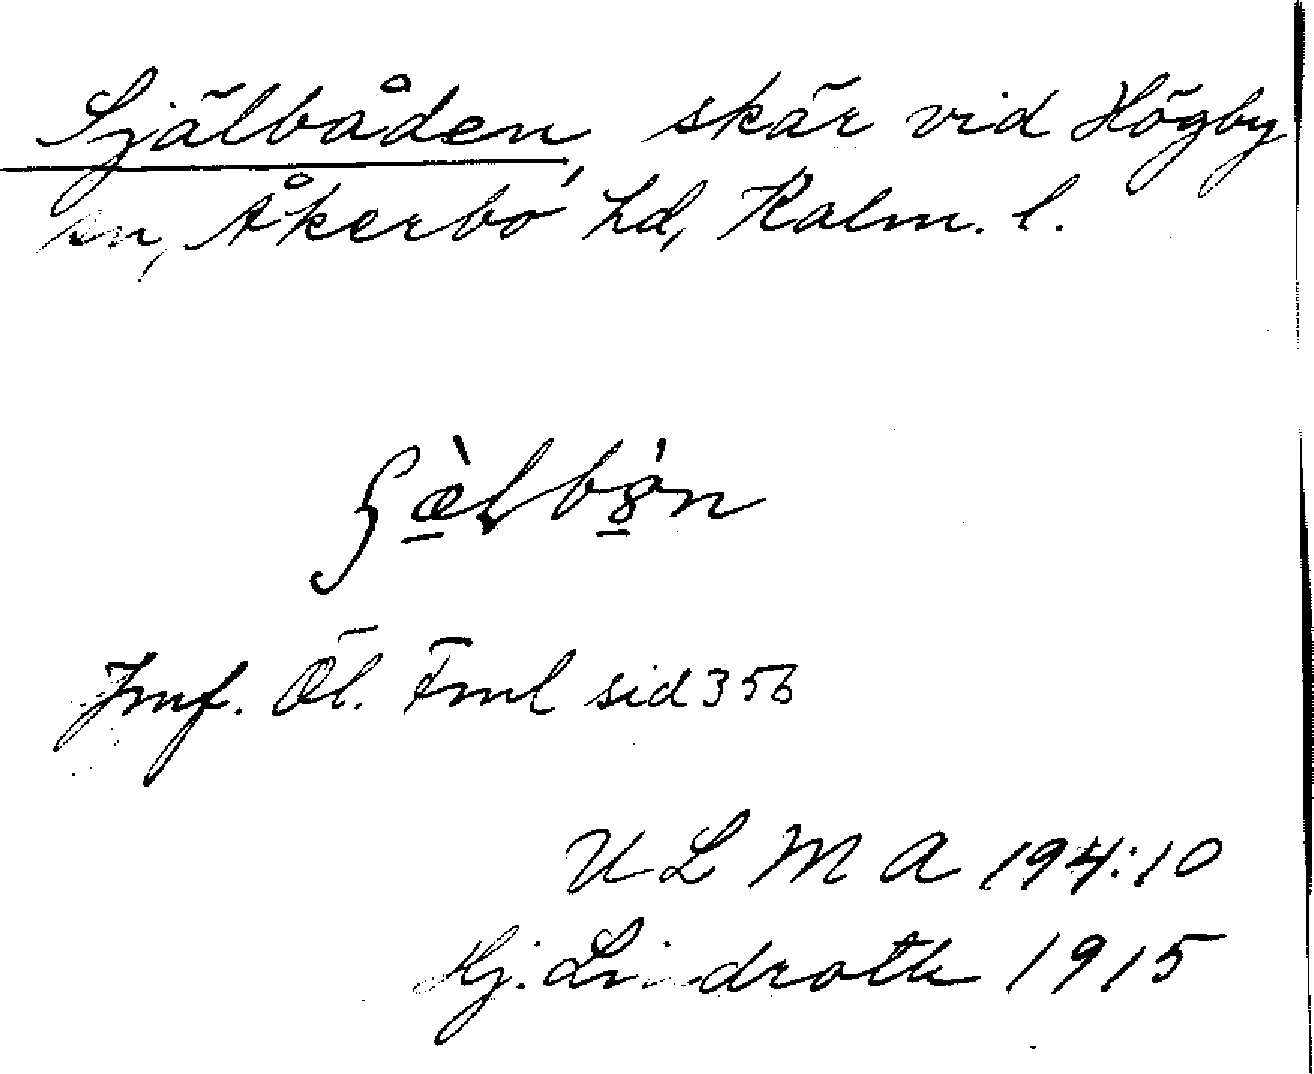 Själbåden, skär vid Högby
sn, Åkerbo hd, Kalm. l.
Jmf. Öl. Fml sid 356
U L M A 194:10
Hj. Lindroth 1915